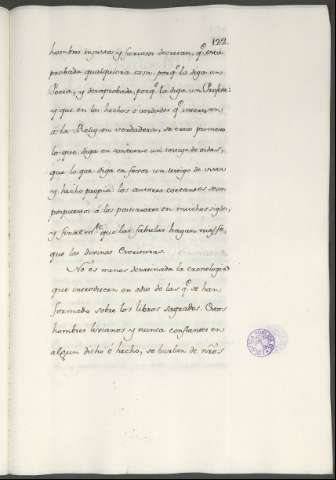 122
hombres injustos y furiosos desvían, q.e sea
probada qualquiera cosa, porq.e la diga un
Poeta, y desaprobada, porq.e la diga un Profeta:
y que en los hechos ó verdades q.e interesan
á la Religion verdadera, se crea primero
lo que diga en contrario un testigo de oidas,
que lo que diga en favor un testigo de vista
y hecho propio: los autores coetaneos son
propuestos á los posteriores en muchos siglos,
y finalm.te que las fabulas hagan mas fe,
que las divinas Escrituras.
No es menos desatinada la cronologia
que introducen en odio de las q.e se han
formado sobre los libros sagrados. Estos
hombres livianos y nunca constantes en
algun dicho ó hecho, se burlan de nr̃os